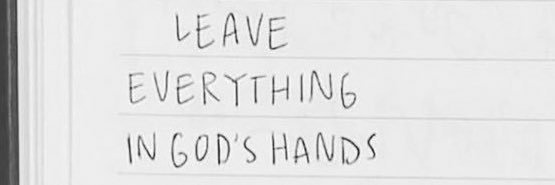 LEAVE
EVERYTHING
IN GOD'S HANDS